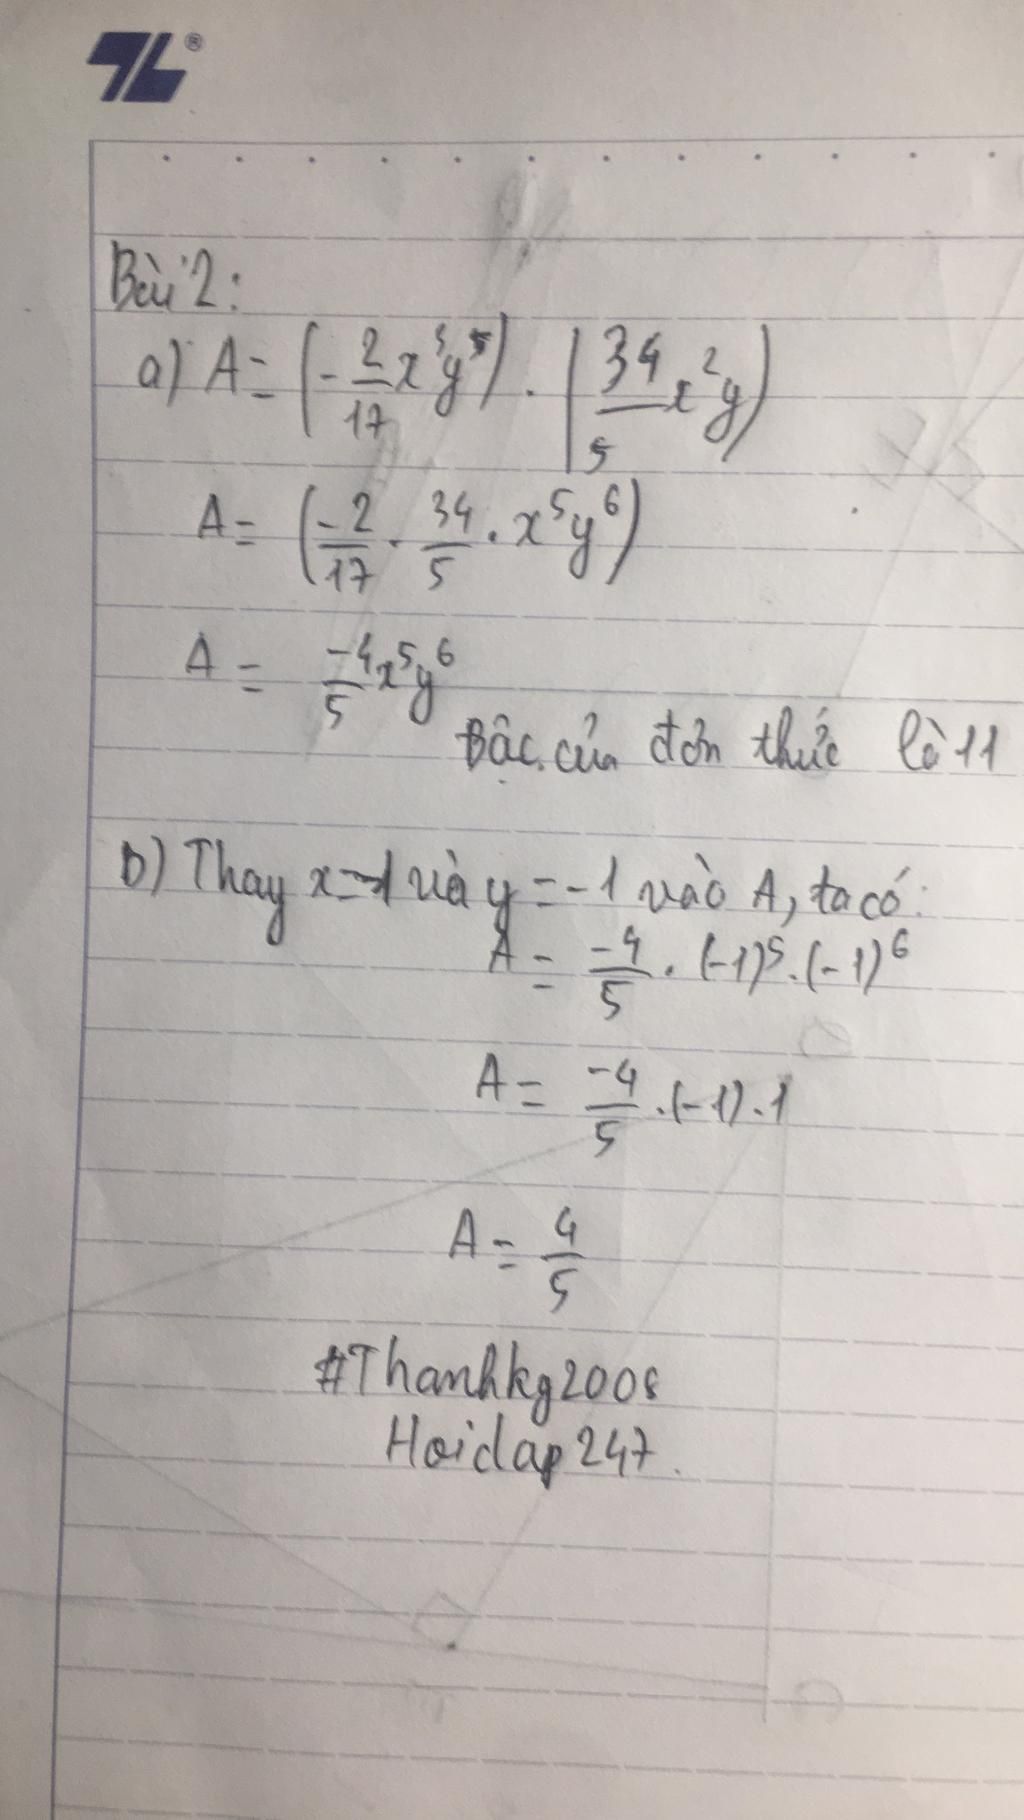 TL®
Bài 2:
a) A = (-2/17 x³y⁵) . (34/5 x²y)
A = (-2/17 . 34/5 . x⁵y⁶)
A = -4/5 x⁵y⁶
Bậc của đơn thức là 11
b) Thay x=-1 và y = -1 vào A, ta có:
A = -4/5 . (-1)⁵ . (-1)⁶
A = -4/5 . (-1) . 1
A = 4/5
#Thanhkg2008
Hoidap247.